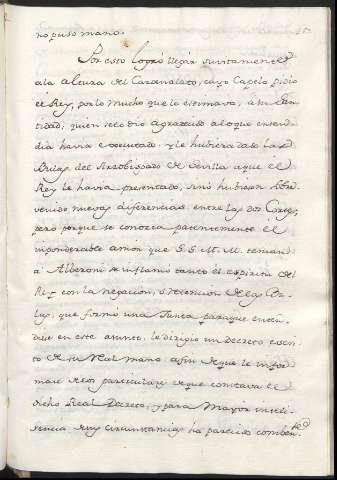 no puso mano.
Por esto logró llegár juntamente
ala altura del Cardenalato, cuyo Capelo pidio
el Rey, por lo mucho que lo estimava, á su San
tidad, quien selo dió agradecido alo que enten
dia havia executado, y le hubiera dado las
Bulas del Arzobispado de Sevilla aque el
Rey le havia presentado, sino hubieran sobre
venido nuevas diferencias entre las dos Cortes,
pero porque se conozca patentemente el
imponderable amor que S.S. M.M. tenian
á Alberoni se inflamó tanto el espiritu del
Rey con la negacion, ó retencion delas Bu
las, que formó una Junta para que enten
diese en este asunto, le dirigio un Decreto escri
to de su Real mano afin de que le infor
mase delos particulares de que constava el
dicho Real Decreto, y para Mayor inteli
gencia de sus circunstancias ha parecido combente